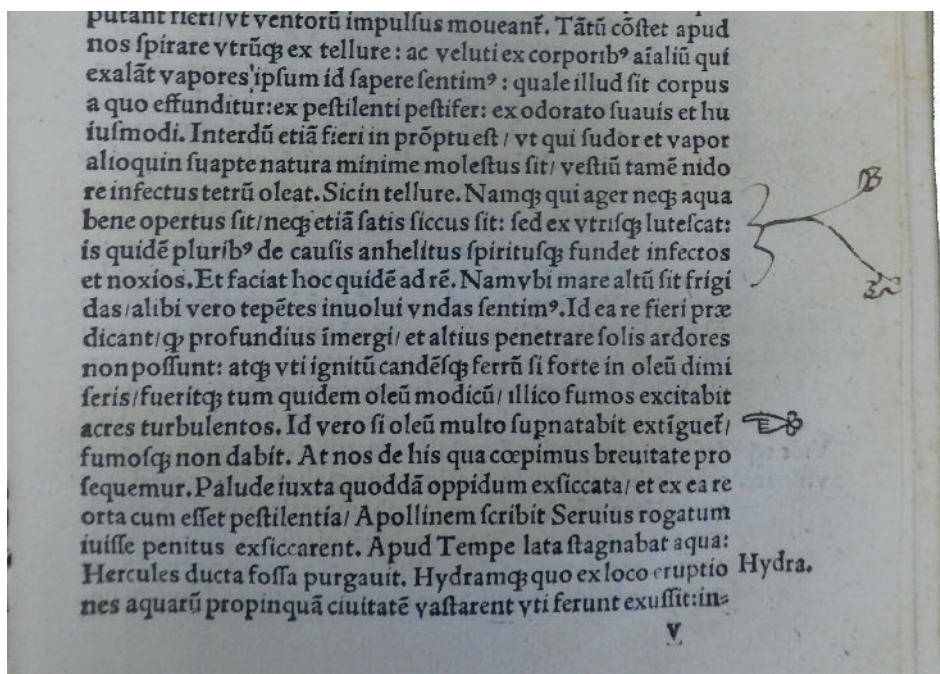 putant fieri/vt ventorū impulſus moueant᷑. Tātū cōſtet apud
nos ſpirare vtrūqꝫ ex tellure: ac veluti ex corporibꝰ aīaliū qui
exalāt vapores ipſum id ſapere ſentimꝰ: quale illud ſit corpus
a quo effunditur:ex peſtilenti peſtifer: ex odorato ſuauis et hu
iuſmodi. Interdū etiā fieri in prōptu eſt / vt qui ſudor et vapor
alioquin ſuapte natura minime moleſtus ſit/ veſtiū tamē nido
re infectus tetrū oleat. Sic in tellure. Namqꝫ qui ager neqꝫ aqua
bene opertus ſit/neqꝫ etiā ſatis ſiccus ſit: ſed ex vtriſqꝫ luteſcat:
is quidē pluribꝰ de cauſis anhelitus ſpirituſqꝫ fundet infectos
et noxios. Et faciat hoc quidē ad rē. Nam vbi mare altū ſit frigi
das/alibi vero tepētes inuolui vndas ſentimꝰ. Id ea re fieri præ
dicant/ꝙ profundius īmergi/ et altius penetrare ſolis ardores
non poſſunt: atqꝫ vti ignitū candēſqꝫ ferrū ſi forte in oleū dimi
ſeris/fueritqꝫ tum quidem oleū modicū/ illico fumos excitabit
acres turbulentos. Id vero ſi oleū multo ſupnatabit extīguet᷑/
fumoſqꝫ non dabit. At nos de his qua cœpimus breuitate pro
ſequemur. Palude iuxta quoddā oppidum exſiccata/ et ex ea re
orta cum eſſet peſtilentia/ Apollinem ſcribit Seruius rogatum
iuiſſe penitus exſiccarent. Apud Tempe lata ſtagnabat aqua:
Hercules ducta foſſa purgauit. Hydramqꝫ quo ex loco eruptio
Hydra.
nes aquarū propinquā ciuitatē vaſtarent vti ferunt exuſſit:in⸗
v